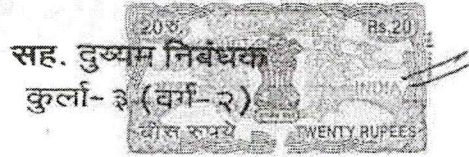 20 रु. Rs.20
सह. दुय्यम निबंधक
कुर्ला- ३ (वर्ग- २)
INDIA
बीस रुपये TWENTY RUPEES